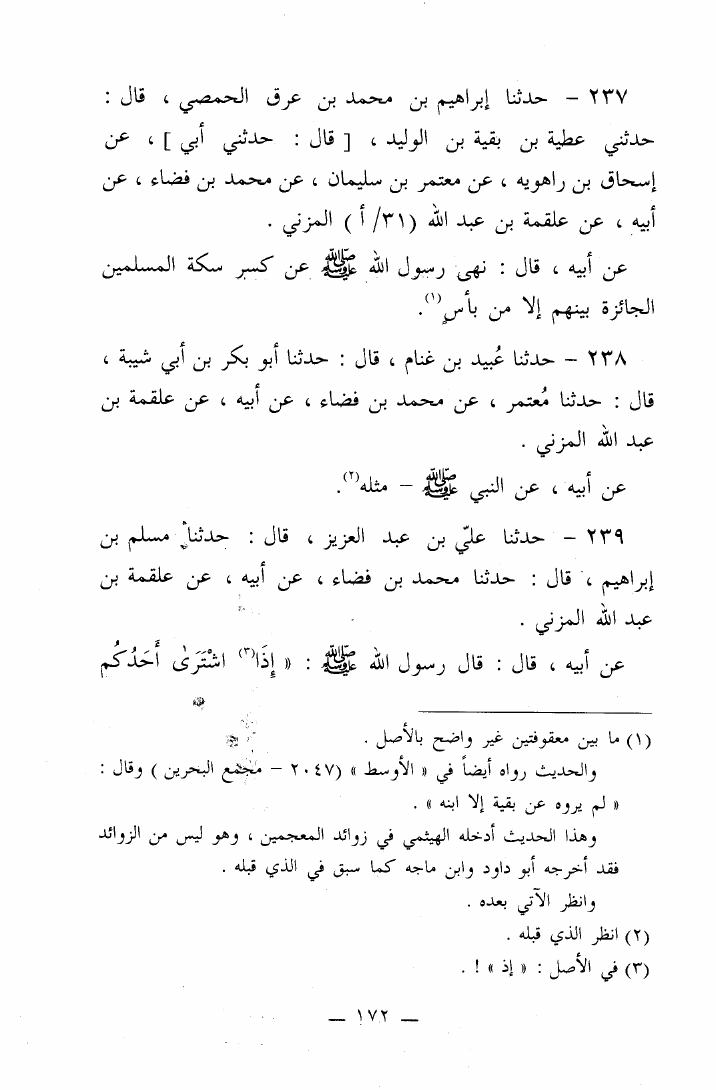 ٢٣٧ – حدثنا إبراهيم بن محمد بن عرق الحمصي ، قال :
حدثني عطية بن بقية بن الوليد ، [ قال : حدثني أبي ] ، عن
إسحاق بن راهويه ، عن معتمر بن سليمان ، عن محمد بن فضاء ، عن
أبيه ، عن علقمة بن عبد الله (٣١/ أ ) المزني .
عن أبيه ، قال : نهى رسول الله ﷺ عن كسر سكة المسلمين
الجائزة بينهم إلا من بأسٍ(١).
٢٣٨ – حدثنا عُبيد بن غنام ، قال : حدثنا أبو بكر بن أبي شيبة ،
قال : حدثنا مُعتمر ، عن محمد بن فضاء ، عن أبيه ، عن علقمة بن
عبد الله المزني .
عن أبيه ، عن النبي ﷺ – مثله(٢).
٢٣٩ – حدثنا عليّ بن عبد العزيز ، قال : حدثنا مسلم بن
إبراهيم ، قال : حدثنا محمد بن فضاء ، عن أبيه ، عن علقمة بن
عبد الله المزني .
عن أبيه ، قال : قال رسول الله ﷺ : « إِذَا(٣) اشْتَرَىٰ أَحَدُكُم
(١) ما بين معقوفتين غير واضح بالأصل .
والحديث رواه أيضاً في « الأوسط » (٢٠٤٧ – مجمع البحرين ) وقال :
« لم يروه عن بقية إلا ابنه » .
وهذا الحديث أدخله الهيثمي في زوائد المعجمين ، وهو ليس من الزوائد
فقد أخرجه أبو داود وابن ماجه كما سبق في الذي قبله .
وانظر الآتي بعده .
(٢) انظر الذي قبله .
(٣) في الأصل : « إذ » ! .
— ١٧٢ —